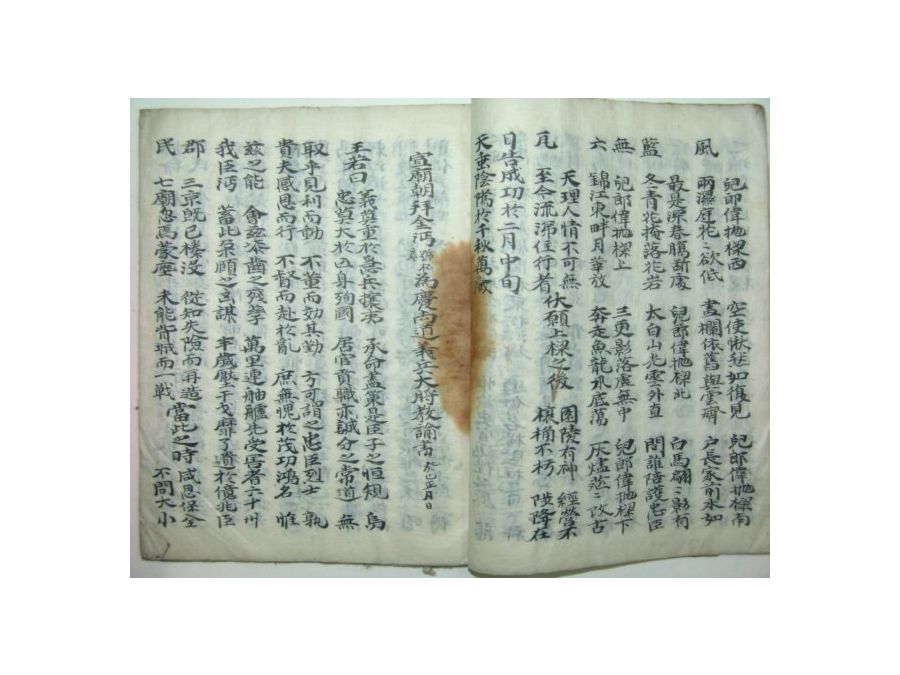 兒郎偉抛樑西 空使愀萢如復見 兒郎偉抛樑南
風 雨濕庭花〻欲低 畵欄依舊與雲齊 戶長家前水如
藍 最是深春鵑哭處 兒郎偉抛樑北 白馬翩〻影有
無 冬青花掩落花岩 太白山光雲外直 問誰陪護忠臣
六 兒郎偉抛樑上 三更影落虛無中 兒郎偉抛樑下
錦江東畔月華放 奔走魚龍水底蕩 灰燼茫〻改古
瓦 天理人情不可無 伏願上樑之後 園陵有神 經營不
至今流涕住行者 欀桷不朽 陟降在
日告成功於二月中旬
天 陰隲於千秋萬歲
宣廟朝拜金沔 爲慶尙道義兵大將敎諭書 癸巳正月日
王若曰 義莫重於急兵攘夷 承命盖策是臣子之恒規 烏
忠莫大於亡身殉國 居官貢職亦誠分之常道 無
取乎見利而動 不董而効其勤 方可謂之忠臣烈士 孰
貴夫感恩而行 不督而赴於亂 庶無愧於茂功鴻名 惟
玆之能 會玆漆齒之残孽 萬里連舳艫先受居者六十州
我臣沔 蓄此朶頤之玄謀 半歲壓干戈靡了遺於億兆臣
郡 三京旣已榛沒 從知失險而再造 當此之時 咸思保全
民 七廟忽焉蒙塵 未能背城而一戰 不問大小